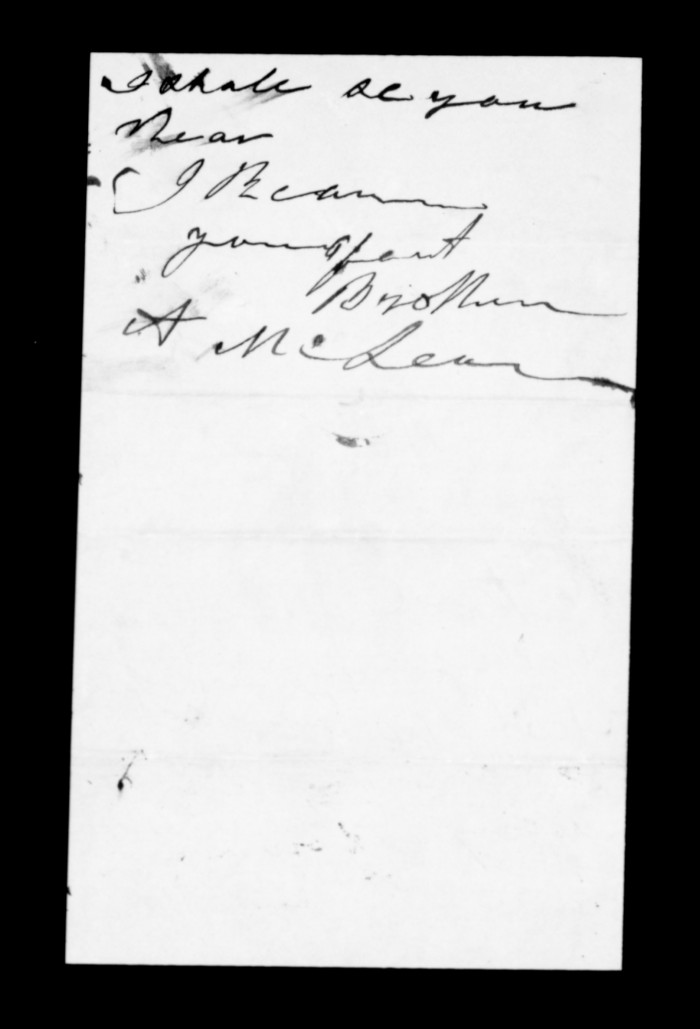 I shall se you
hear
I Remain
your afect
Brother
A McLean